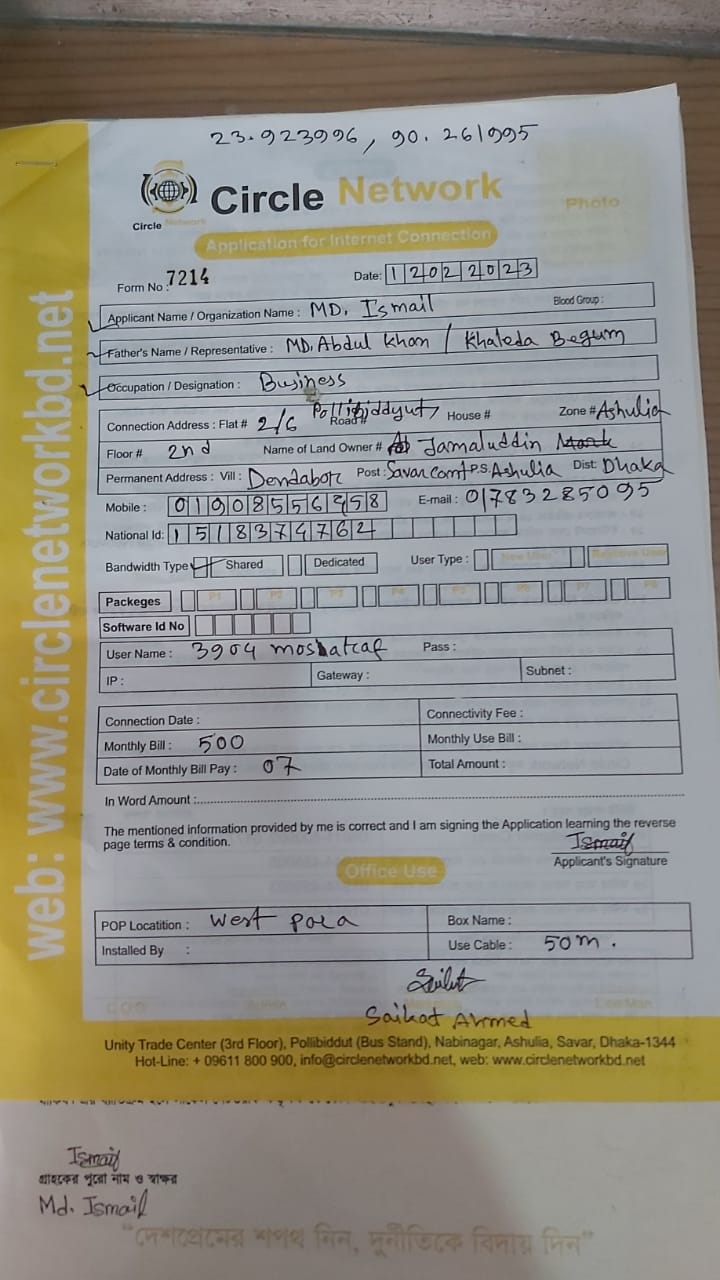 23.923996, 90.261995
Circle Network
Circle Network
Photo
Application for Internet Connection
Form No : 7214
Date: 12022023
Applicant Name / Organization Name : MD. Ismail
Blood Group :
Father's Name / Representative : MD. Abdul Khan / Khaleda Begum
Occupation / Designation : Business
Connection Address : Flat # 2/6 Road # Pollibiddyut, House # Zone # Ashulia
Floor # 2nd Name of Land Owner # Jamaluddin
Permanent Address : Vill : Dendabor Post : Savar Cant P.S. Ashulia Dist: Dhaka
Mobile : 01908556958 E-mail : 01783285095
National Id: 1518374762
Bandwidth Type Shared Dedicated User Type : New User
Packeges P1 P2 P3 P4 P5 P6 P7 P8
Software Id No
User Name : 3904 mosharaf Pass :
IP : Gateway : Subnet :
Connection Date : Connectivity Fee :
Monthly Bill : 500 Monthly Use Bill :
Date of Monthly Bill Pay : 07 Total Amount :
In Word Amount :
The mentioned information provided by me is correct and I am signing the Application learning the reverse
page terms & condition.
Ismail
Applicant's Signature
Office Use
POP Locatition : West para Box Name :
Installed By : Use Cable : 50m.
Saikat Ahmed
Unity Trade Center (3rd Floor), Pollibiddut (Bus Stand), Nabinagar, Ashulia, Savar, Dhaka-1344
Hot-Line: + 09611 800 900, info@circlenetworkbd.net, web: www.circlenetworkbd.net
web: www.circlenetworkbd.net
Ismail
গ্রাহকের পুরো নাম ও স্বাক্ষর
Md. Ismail
"দেশপ্রেমের শপথ নিন, দুর্নীতিকে বিদায় দিন"